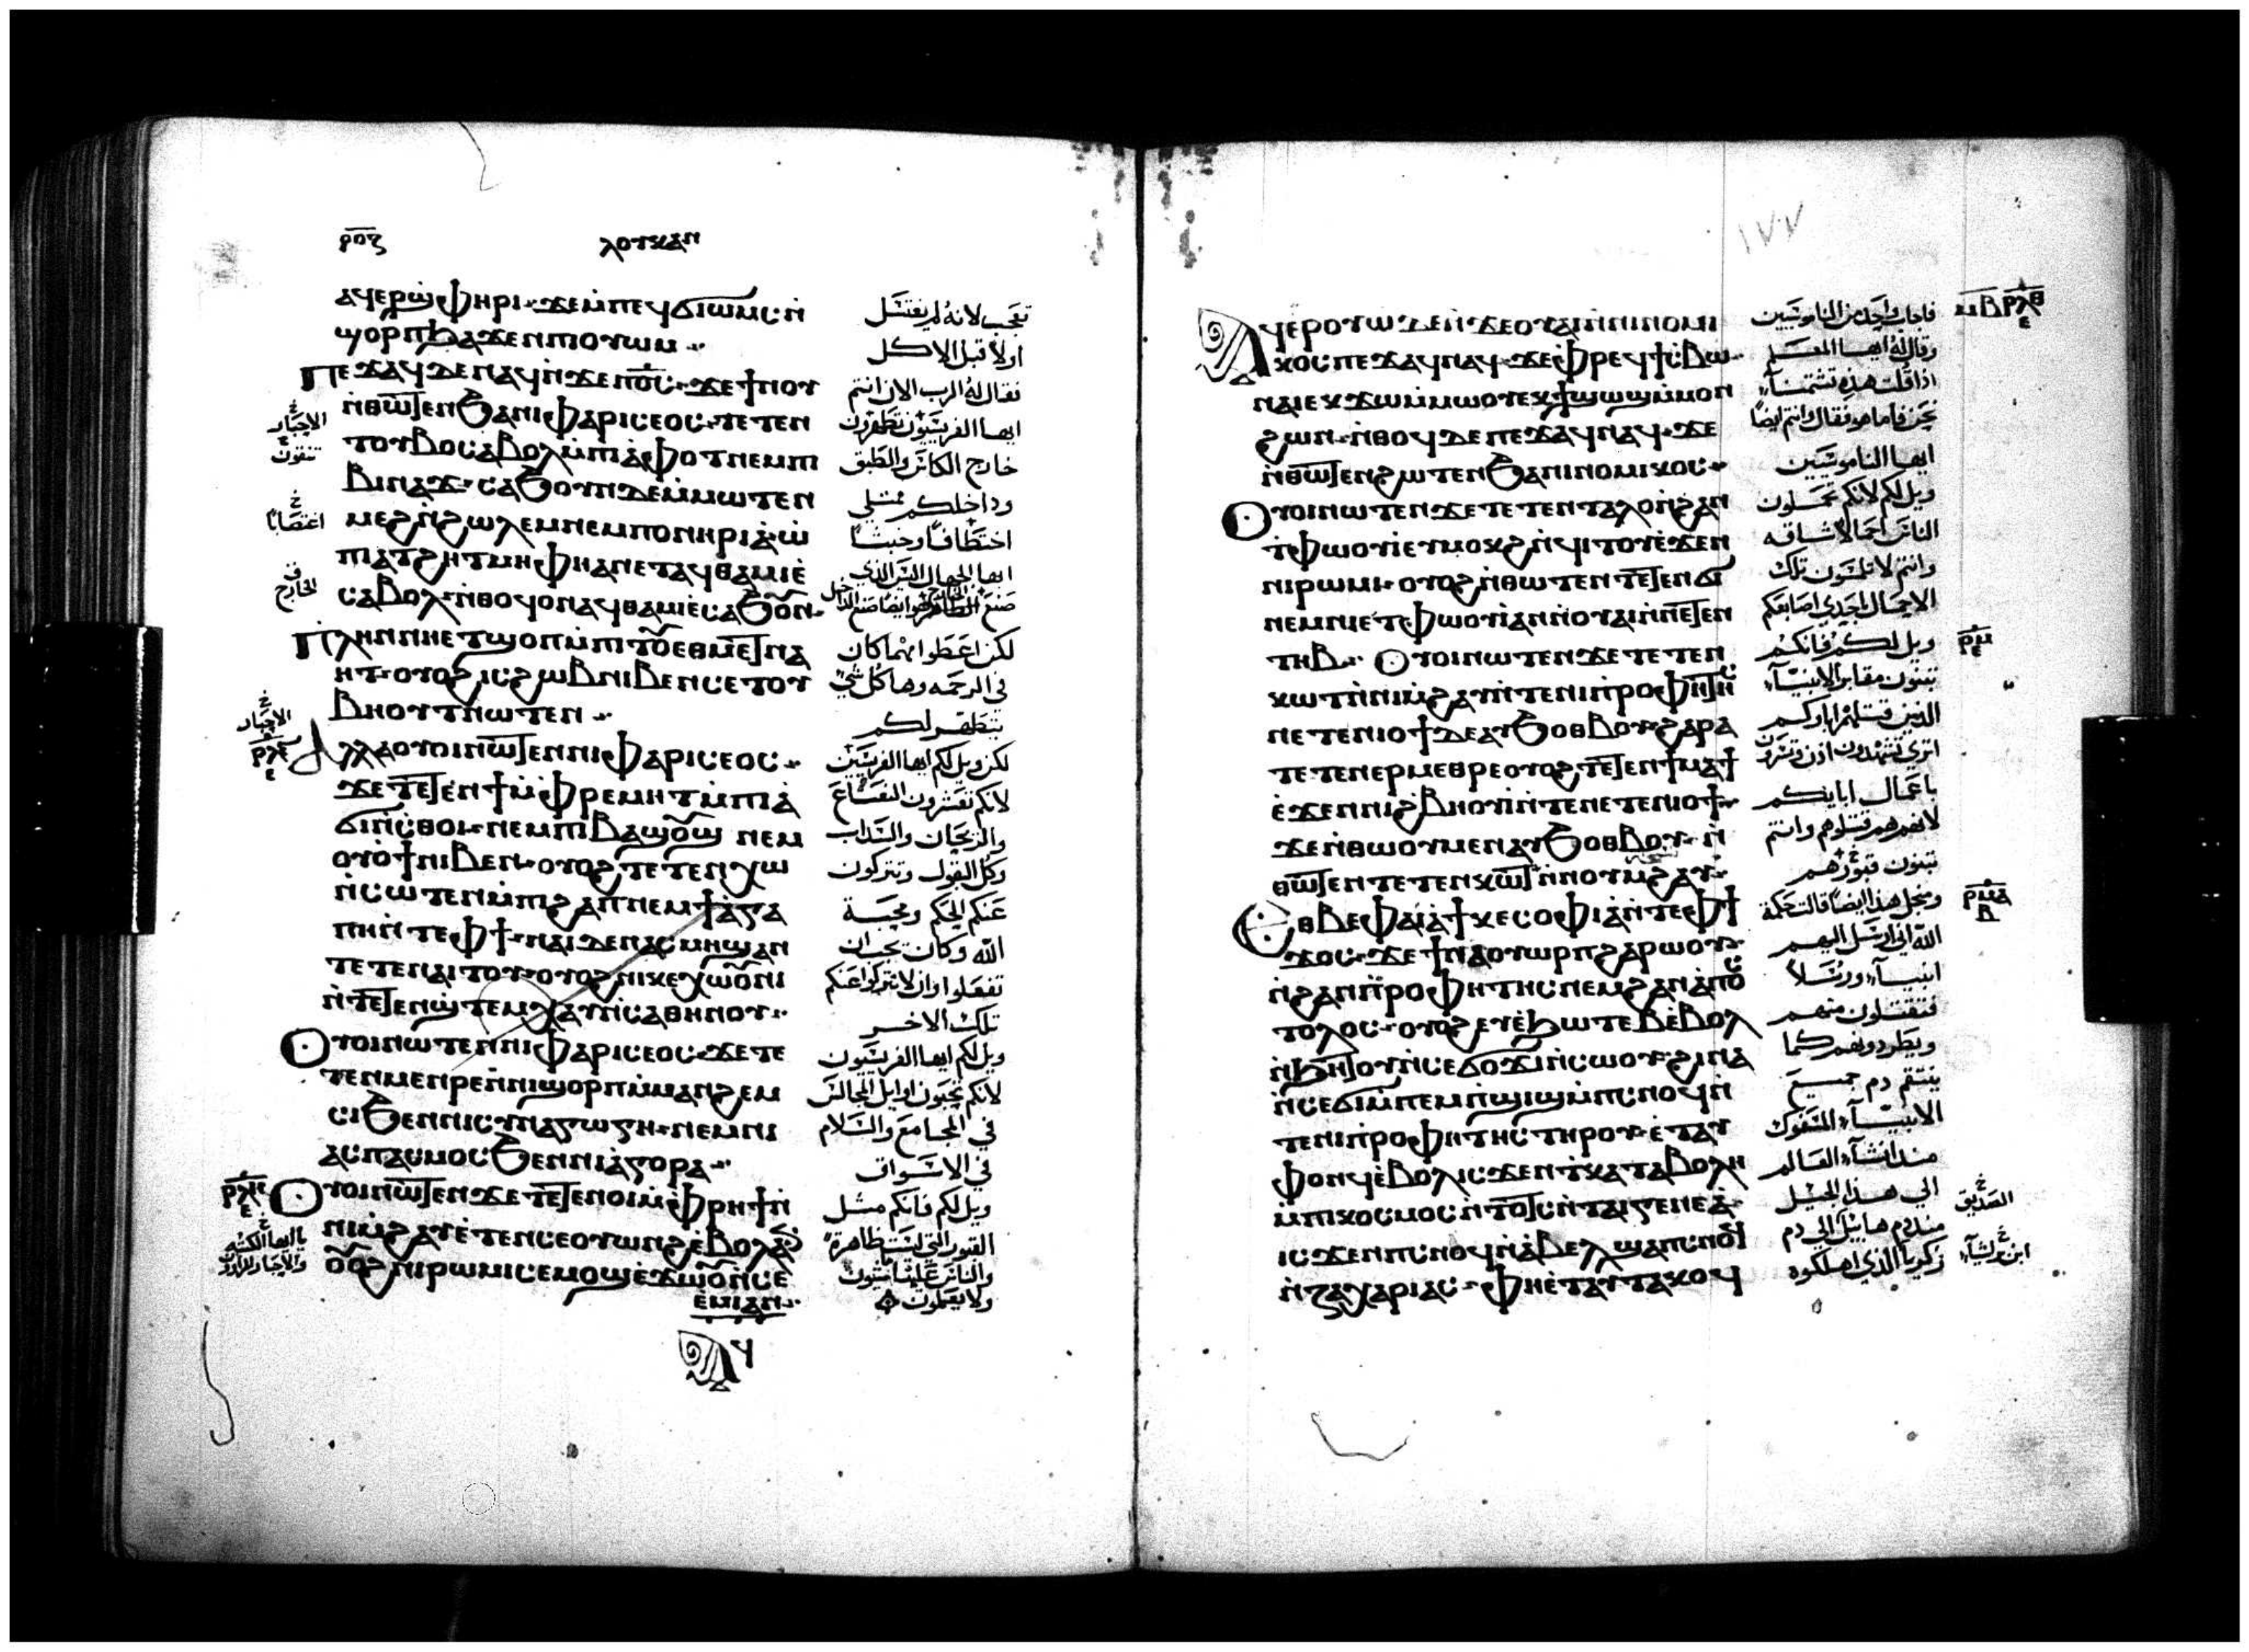 ⲣⲟⲍ
ⲗⲟⲩⲕⲁⲛ
ⲁϥⲉⲣϣ̀ⲫⲏⲣⲓ· ϫⲉⲙ̀ⲡⲉϥϭⲓⲱⲙⲥ ⲛ̀
ϣⲟⲣⲡ ϧⲁϫⲉⲛ ⲡⲓⲟⲩⲱⲙ
ⲡⲉϫⲁϥ ⲇⲉ ⲛⲁϥ ⲛ̀ϫⲉ ⲡⲟ̅ⲥ̅· ϫⲉ ϯⲛⲟⲩ
ⲛ̀ⲑⲱⲧⲉⲛ ϧⲁ ⲛⲓⲫⲁⲣⲓⲥⲉⲟⲥ· ⲧⲉⲧⲉⲛ
ⲧⲟⲩⲃⲟ ⲥⲁⲃⲟⲗ ⲙ̀ⲡⲓⲁ̀ⲫⲟⲧ ⲛⲉⲙ ⲡⲓ
ⲃⲓⲛⲁϫ· ⲥⲁϧⲟⲩⲛ ⲇⲉ ⲙ̀ⲙⲱⲧⲉⲛ
ⲙⲉϩ ⲛ̀ϩⲱⲗⲉⲙ ⲛⲉⲙ ⲡⲟⲛⲏⲣⲓⲁ̀· ⲱ̀
ⲡⲓⲁⲧϩⲏⲧ ⲙⲏ ⲫⲏ ⲁⲛ ⲉⲧⲁϥⲑⲁⲙⲓⲉ̀
ⲥⲁⲃⲟⲗ· ⲛ̀ⲑⲟϥ ⲟⲛ ⲁϥⲑⲁⲙⲓⲉ̀ ⲥⲁϧⲟⲩⲛ·
ⲡⲗⲏⲛ ⲛⲏ ⲉⲧϣⲟⲡ ⲙ̀ⲙⲱⲟⲩ
ⲛⲏⲧ· ⲟⲩⲟϩ ⲓⲥ ϩⲱⲃ ⲛⲓⲃⲉⲛ ⲥⲉⲧⲟⲩ
ⲃⲏⲟⲩⲧ ⲛⲱⲧⲉⲛ
ⲁⲗⲗⲁ ⲟⲩⲟⲓ ⲛⲱⲧⲉⲛ ⲛⲓⲫⲁⲣⲓⲥⲉⲟⲥ·
ϫⲉ ⲧⲉⲧⲉⲛϯ ⲙ̀ⲫⲣⲉⲙⲏⲧ ⲙ̀ⲡⲓⲁ̀
ϭⲓⲛ̀ⲥⲑⲟⲓ· ⲛⲉⲙ ⲡⲓⲃⲁϣⲟⲩϣ ⲛⲉⲙ
ⲟⲩⲟϯ ⲛⲓⲃⲉⲛ· ⲟⲩⲟϩ ⲧⲉⲧⲉⲛⲭⲱ
ⲛ̀ⲥⲱⲧⲉⲛ ⲙ̀ⲡⲓϩⲁⲡ ⲛⲉⲙ ϯⲁ̀ⲅⲁ
ⲡⲏ ⲛ̀ⲧⲉ ⲫϯ· ⲛⲁⲓ ⲇⲉ ⲛⲁⲥⲙ̀ⲡϣⲁ ⲛ
ⲧⲉⲧⲉⲛⲁⲓⲧⲟⲩ· ⲟⲩⲟϩ ⲛⲓⲕⲉⲭⲱⲟⲩⲛⲓ
ⲛ̀ⲧⲉⲧⲉⲛϣ̀ⲧⲉⲙⲭⲁⲩ ⲛ̀ⲥⲁⲑⲏⲛⲟⲩ·
ⲟⲩⲟⲓ ⲛⲱⲧⲉⲛ ⲛⲓⲫⲁⲣⲓⲥⲉⲟⲥ· ϫⲉ ⲧⲉ
ⲧⲉⲛⲙⲉⲛⲣⲉ ⲛⲓϣⲟⲣⲡ ⲙ̀ⲙⲁⲛ̀ϩⲉⲙ
ⲥⲓ ϧⲉⲛ ⲛⲓⲥⲩⲛⲁⲅⲱⲅⲏ· ⲛⲉⲙ ⲛⲓ
ⲁⲥⲡⲁⲥⲙⲟⲥ ϧⲉⲛ ⲛⲓⲁ̀ⲅⲟⲣⲁ
ⲟⲩⲟⲓ ⲛⲱⲧⲉⲛ ϫⲉ ⲧⲉⲧⲉⲛⲟⲓ ⲙ̀ⲫⲣⲏϯ ⲛ̀
ⲛⲓⲙ̀ϩⲁⲩ ⲉ̀ⲧⲉ ⲛ̀ⲥⲉⲟⲩⲱⲛϩ ⲉ̀ⲃⲟⲗ ⲁⲛ
ⲟⲩⲟϩ ⲛⲓⲣⲱⲙⲓ ⲥⲉⲙⲟϣⲓ ⲉ̀ϫⲱⲟⲩ ⲛ̀ⲥⲉ
ⲉ̀ⲙⲓ ⲁⲛ
ⲁϥ
تعجب لانه لم يغتسل
اولا قبل الاكل
فقال له الرب الان انتم
ايها الفريسيون تطهرون
خارج الكاس والطبق
وداخلكم ممتلي
اختطافا وخبثا
ايها الجهال اليس الذي
لكن اعطوا مهما كان
في الرحمه وها كل شي
يتطهر لكم
لكن ويل لكم ايها الفريسيين
لانكم تعشرون النعناع
والزيجان والسداب
وكل البقول وتتركون
عنكم الحكم ومحبة
الله وكان يجب ان
تفعلوا وان لا تتركوا عنكم
تلك الاخر
ويل لكم ايها الفريسيون
لانكم تحبون اوايل المجالس
في المجامع والسلام
في الاسواق
ويل لكم فانكم مثل
القبور التي ليست ظاهرة
والناس عليها يمشون
ولا يعلمون
الاحبار
تنقون
اغتصابا
الخارج
الاحبار
ⲣⲗⲍ
ⲣⲗⲏ
١٧٧
ⲁϥⲉⲣⲟⲩⲱ̀ ⲇⲉ ⲛ̀ϫⲉ ⲟⲩⲁⲓ ⲛ̀ⲛⲓⲛⲟⲙⲓ
ⲕⲟⲥ ⲡⲉϫⲁϥ ⲛⲁϥ· ϫⲉ ⲫⲣⲉϥϯⲥⲃⲱ
ⲛⲁⲓ ⲉⲕϫⲱ ⲙ̀ⲙⲱⲟⲩ ⲉⲕϯϣⲱϣ ⲙ̀ⲙⲟⲛ
ϩⲱⲛ· ⲛ̀ⲑⲟϥ ⲇⲉ ⲡⲉϫⲁϥ ⲛⲁϥ· ϫⲉ
ⲛ̀ⲑⲱⲧⲉⲛ ϩⲱⲧⲉⲛ ϧⲁ ⲛⲓⲛⲟⲙⲓⲕⲟⲥ
ⲟⲩⲟⲓ ⲛⲱⲧⲉⲛ ϫⲉ ⲧⲉⲧⲉⲛⲧⲁⲗⲟ ⲛ̀ϩⲁⲛ
ⲉ̀ⲧⲫⲱⲟⲩⲓ ⲉⲩⲙⲟⲕϩ ⲛ̀ϥⲓⲧⲟⲩ ⲉ̀ϫⲉⲛ
ⲛⲓⲣⲱⲙⲓ· ⲟⲩⲟϩ ⲛ̀ⲑⲱⲧⲉⲛ ⲧⲉⲧⲉⲛϭⲓ
ⲛⲉⲙ ⲛⲓⲉ̀ⲧⲫⲱⲟⲩⲓ ⲁⲛ ⲛ̀ⲟⲩⲁⲓ ⲛ̀ⲛⲉⲧⲉⲛ
ⲧⲏⲃ· ⲟⲩⲟⲓ ⲛⲱⲧⲉⲛ ϫⲉ ⲧⲉⲧⲉⲛ
ⲕⲱⲧ ⲛ̀ⲛⲓⲙ̀ϩⲁⲩ ⲛ̀ⲧⲉ ⲛⲓⲡ̀ⲣⲟⲫⲏⲧⲏⲥ
ⲛⲉⲧⲉⲛⲓⲟϯ ⲇⲉ ⲁⲩϧⲟⲑⲃⲟⲩ· ϩⲁⲣⲁ
ⲧⲉⲧⲉⲛⲉⲣⲙⲉⲑⲣⲉ ⲟⲩⲟϩ ⲧⲉⲧⲉⲛϯⲙⲁϯ
ⲉ̀ϫⲉⲛ ⲛⲓϩ̀ⲃⲏⲟⲩⲓ ⲛ̀ⲧⲉ ⲛⲉⲧⲉⲛⲓⲟϯ
ϫⲉ ⲛ̀ⲑⲱⲟⲩ ⲙⲉⲛ ⲁⲩϧⲟⲑⲃⲟⲩ· ⲛ̀
ⲑⲱⲧⲉⲛ ⲧⲉⲧⲉⲛⲕⲱⲧ ⲛ̀ⲛⲟⲩⲙ̀ϩⲁⲩ
ⲉⲑⲃⲉ ⲫⲁⲓ ⲁ̀ ϯⲕⲉⲥⲟⲫⲓⲁ̀ ⲛ̀ⲧⲉ ⲫϯ
ϫⲟⲥ· ϫⲉ ϯⲛⲁⲟⲩⲱⲣⲡ ϩⲁⲣⲱⲟⲩ
ⲛ̀ϩⲁⲛⲡ̀ⲣⲟⲫⲏⲧⲏⲥ ⲛⲉⲙ ϩⲁⲛⲁ̀ⲡⲟⲥ
ⲧⲟⲗⲟⲥ· ⲟⲩⲟϩ ⲉⲩⲉ̀ϧⲱⲧⲉⲃ ⲉ̀ⲃⲟⲗ
ⲛ̀ϧⲏⲧⲟⲩ ⲛ̀ⲥⲉϭⲟϫⲓ ⲛ̀ⲥⲱⲟⲩ· ϩⲓⲛⲁ
ⲛ̀ⲥⲉϭⲓ ⲙ̀ⲡⲉⲙⲡ̀ϣⲓϣ ⲙ̀ⲡⲥⲛⲟϥ ⲛ̀
ⲧⲉ ⲛⲓⲡ̀ⲣⲟⲫⲏⲧⲏⲥ ⲧⲏⲣⲟⲩ· ⲉ̀ⲧⲁⲩ
ⲫⲟⲛϥ ⲉ̀ⲃⲟⲗ ⲓⲥϫⲉⲛ ⲧ̀ⲕⲁⲧⲁⲃⲟⲗⲏ
ⲙ̀ⲡⲓⲕⲟⲥⲙⲟⲥ ⲛ̀ⲧⲟⲧⲥ ⲛ̀ⲧⲁⲓⲅⲉⲛⲉⲁ̀·
ⲓⲥϫⲉⲛ ⲡⲥⲛⲟϥ ⲛ̀ⲁ̀ⲃⲉⲗ ϣⲁ ⲡⲥⲛⲟϥ
ⲛ̀ⲍⲁⲭⲁⲣⲓⲁⲥ· ⲫⲏ ⲉ̀ⲧⲁⲩⲧⲁⲕⲟϥ
فاجاب واحد من الناموسيين
وقال له ايها المعلم
اذا قلت هذه تشتمنا
نحن فاما هو فقال وانتم ايضا
ايها الناموسيين
ويل لكم لانكم تحملون
الناس احمالا شاقه
وانتم لا تلمسون تلك
الاحمال باحدي اصابعكم
ويل لكم فانكم
تبنون مقابر الانبياء
الذين قتلهم اباوكم
باعمال ابايكم
لانهم هم قتلوهم وانتم
تبنون قبورهم
ومن اجل هذا ايضا قالت حكمة
الله اني ارسل اليهم
انبياء ورسلا
فتقتلون منهم
ويطردونهم كما
ينتقم دم جميع
الانبياء المسفوك
منذ انشاء العالم
الي هذا الجيل
منذ دم هابيل الي دم
زكريا الذي اهلكوه
ⲣⲗⲑ
ⲣⲙ
ⲣⲙⲁ
ⲃ
الصديق